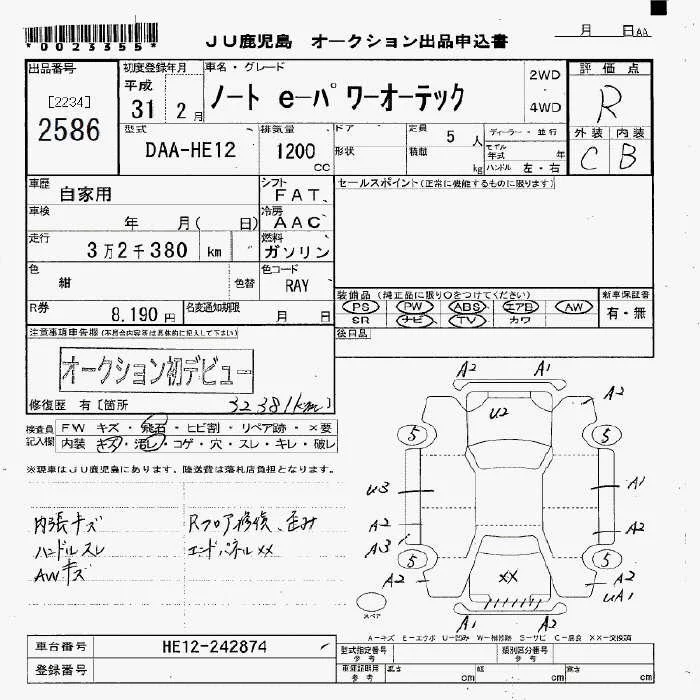 *0023355*
JU鹿児島 オークション出品申込書
月 日AA
出品番号
[2234]
2586
初度登録年月
平成
31 2月
車名・グレード
ノート e-パワーオーテック
2WD
4WD
評価点
R
外装 内装
C B
型式
DAA-HE12
排気量
1200
cc
ドア
形状
定員 5 人
積載 kg
ディーラー・並行
モデル年式 年
ハンドル 左・右
車歴
自家用
シフト
FAT
セールスポイント(正常に機能するものに限ります)
車検
年 月( 日)
冷房
AAC
走行
3万2千380 km
燃料
ガソリン
色
紺
色替
色コード
RAY
装備品(純正品に限り○をつけてください)
PS PW ABS エアB AW
SR ナビ TV カワ
新車保証書
有・無
R券
8,190円
名変通知期限
月 日
後日品
注意事項申告欄(不具合内容等は具体的に記入して下さい)
オークション初デビュー
修復歴 有[箇所
32381km]
検査員
記入欄
FW キズ・飛石・ヒビ割・リペア跡・×要
内装 キズ・汚レ・コゲ・穴・スレ・キレ・破レ
※現車はJU鹿児島にあります。陸送費は落札店負担となります。
内張キズ
ハンドルスレ
AWキズ
Rフロア修復、歪み
エンドパネルXX
A2 A1
U2
A2
5 5
U3 A1
A2 A2
A3
5 5
A2 A2
UA1
XX
スペア
A1 A2
A-キズ E-エクボ U-凹み W-補修跡 S-サビ C-腐食 XX-交換済
車台番号
HE12-242874
登録番号
型式指定番号
参考
類別区分番号
参考
車庫証明用
参考
長さ cm
幅 cm
高さ cm